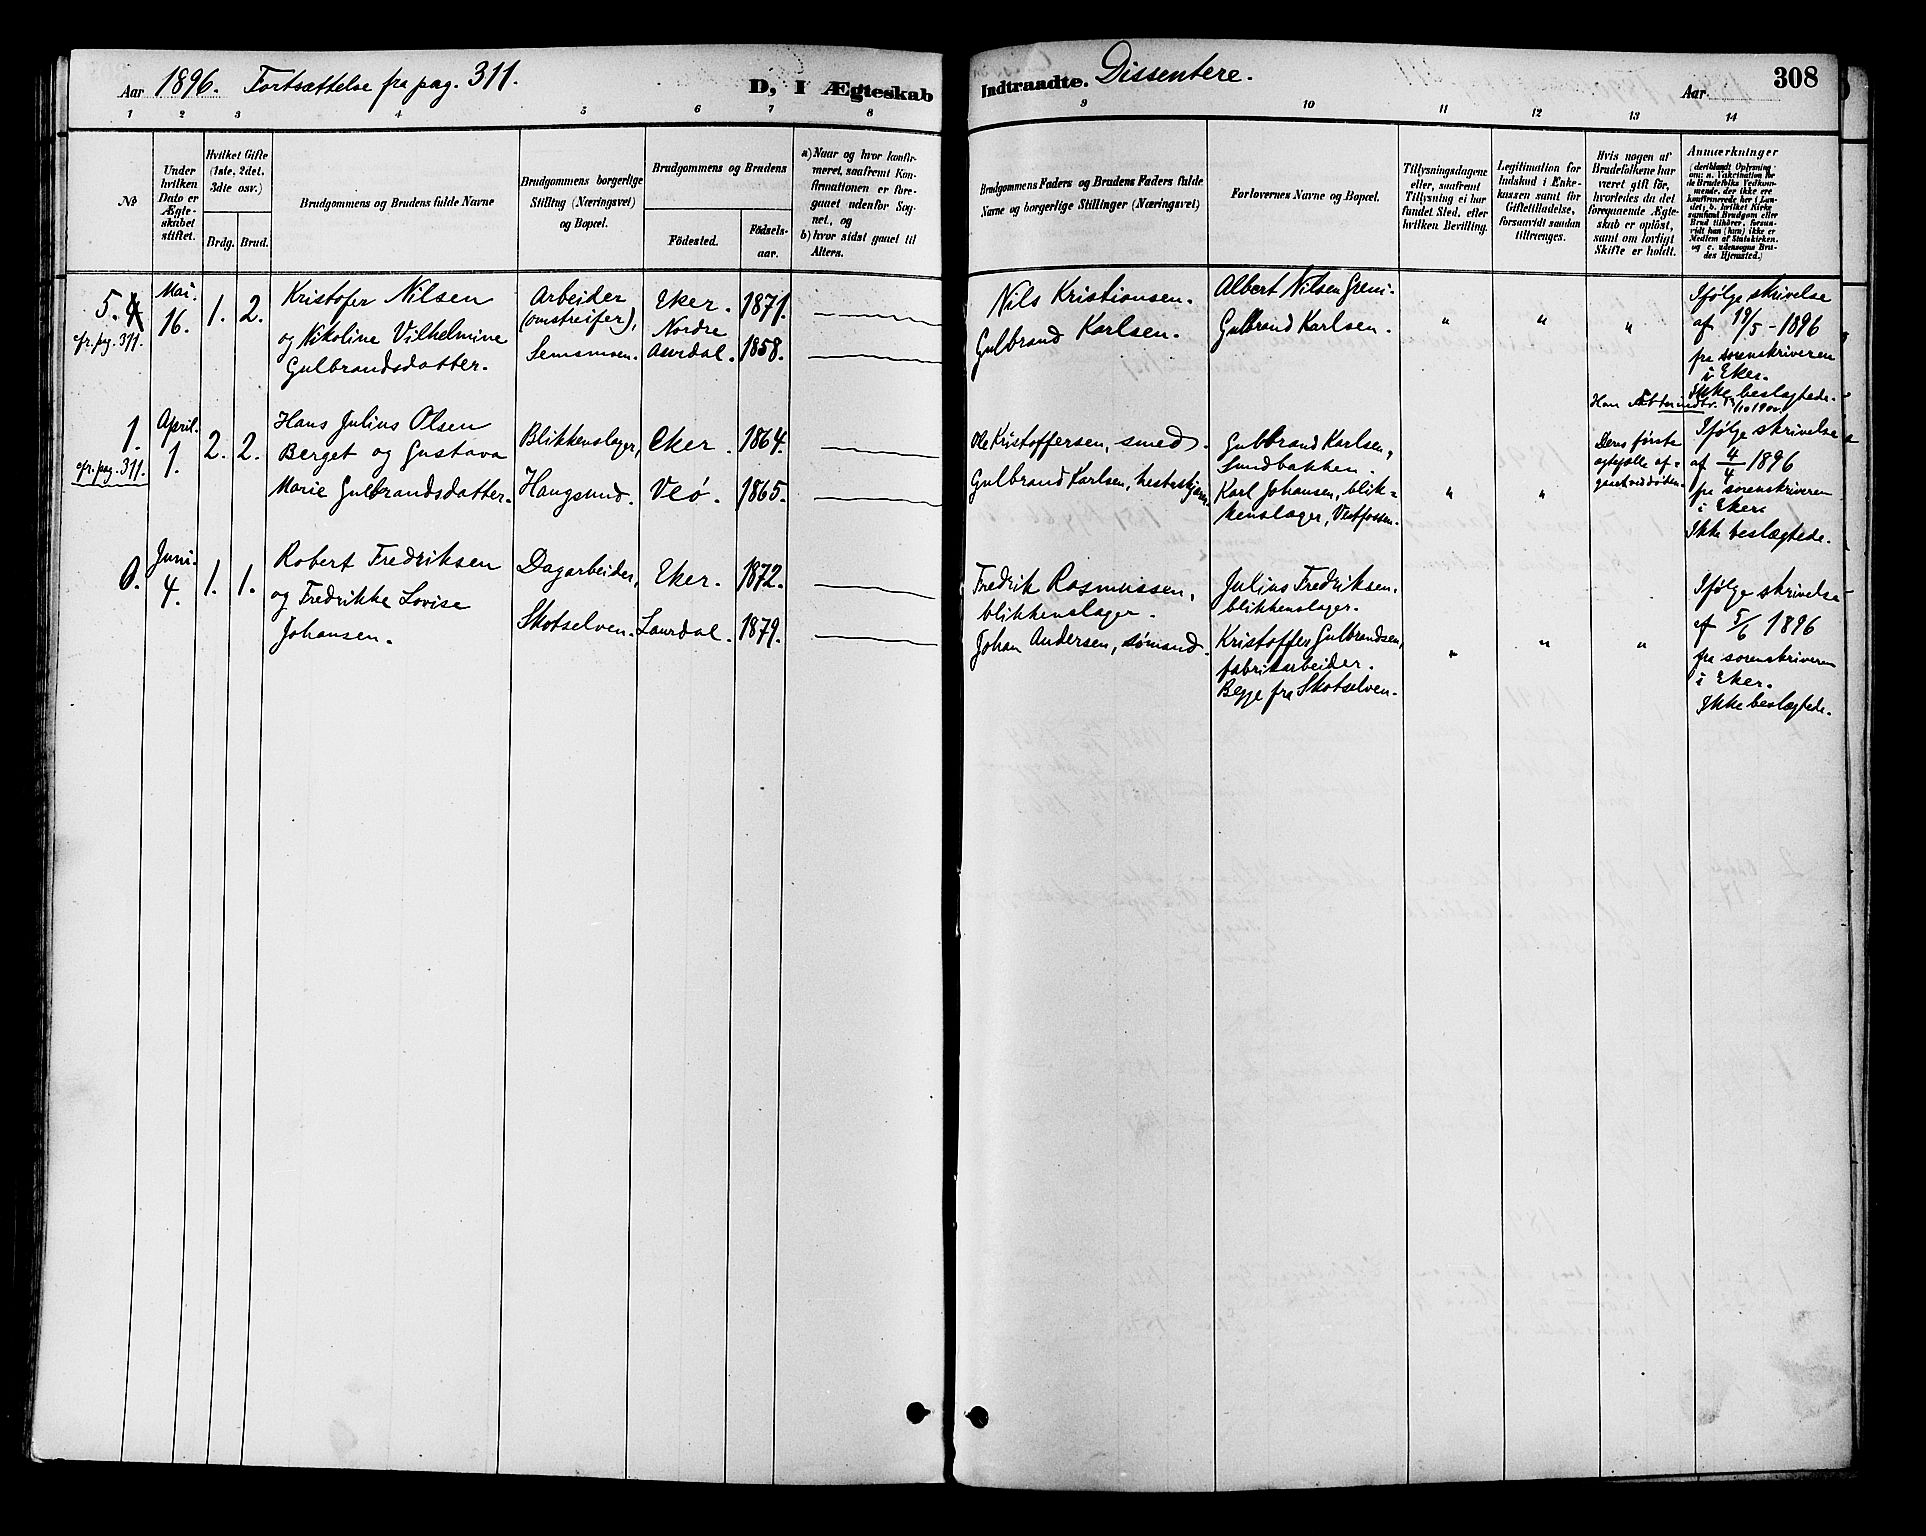 Aar 1896. Fortsættelse fra pag. 311.
D, I Ægteskab
Indtraadte. Dissentere.
Aar
308
1 2 3 4 5 6 7 8
9 10 11 12 13 14
№
Under
hvilken
Dato er
Ægte-
skabet
stiftet.
Hvilket Gifte
(1ste, 2det.
3dte osv.)
Brdg. Brud.
Brudgommens og Brudens fulde Navne
Brudgommens borgerlige
Stilling (Næringsvei)
og Bopæl.
Brudgommens og Brudens
Födested.
Födsels-
aar.
a) Naar og hvor konfir-
meret, saafremt Kon-
firmationen er fore-
gaaet udenfor Sog-
net, og
b) hvor sidst gaaet til
Alters.
Brudgommens Faders og Brudens Faders fulde
Navne og borgerlige Stillinger (Næringsvei)
Forlovernes Navne og Bopæl.
Tillysningsdagene
eller, saafremt
Tillysning ei har
fundet Sted, efter
hvilken Bevilling.
Legitimation for
Indskud i Enke-
kassen samt for
Giftetilladelse,
forsaavidt saadan
tiltrænges.
Hvis nogen af
Brudefolkene har
været gift för,
hvorledes da det
foregaaende Ægte-
skab er oplöst,
samt om lovligt
Skifte er holdt.
Anmærkninger
(deriblandt Oplysning
om: a. Vakcination for
de Brudefolks Vedkom-
mende, der ikke ere
konfirmerede her i Lan-
det, b. hvilket Kirke
samfund Brudgom eller
Brud tilhörer, forsaa-
vidt han (hun) ikke er
Medlem af Statskirken,
og c. udensogns Bru-
des Hjemsted.)
5. 4
cfr. pag. 311.
Mai.
16.
1. 2.
Kristofer Nilsen
og Nikoline Vilhelmine
Gulbrandsdatter.
Arbeider
(omstreifer),
Semsmoen.
Eker. 1871.
Nordre
Aurdal. 1858.
Nils Kristiansen.
Gulbrand Karlsen.
Albert Nilsen Greni.
Gulbrand Karlsen.
" " "
Ifølge skrivelse
af 19/5 - 1896
fra sorenskriveren
i Eker.
Ikke beslægtede.
1.
cfr. pag. 311.
April.
1.
2. 2.
Hans Julius Olsen
Berget og Gustava
Marie Gulbrandsdatter.
Blikkenslager,
Haugsund.
Eker. 1864.
Veø. 1865.
Ole Kristoffersen, smed.
Gulbrand Karlsen,
Gulbrand Karlsen,
Sundbakken.
Karl Johansen, blik-
kenslager, Vestfossen.
" "
Deres første
ægtefælle af-
gaaet ved døden.
Ifølge skrivelse
af 4/4 1896
fra sorenskriveren
i Eker.
Ikke beslægtede.
6.
Juni.
4.
1. 1.
Robert Fredriksen
og Fredrikke Lovise
Johansen.
Dagarbeider,
Skotselven.
Eker. 1872.
Laurdal. 1879.
Fredrik Rasmussen,
blikkenslager.
Johan Andersen, sømand.
Julius Fredriksen.
blikkenslager.
Kristoffer Gulbrandsen,
fabrikarbeider.
Begge fra Skotselven.
" " "
Ifølge skrivelse
af 5/6 1896
fra sorenskriveren
i Eker.
Ikke beslægtede.